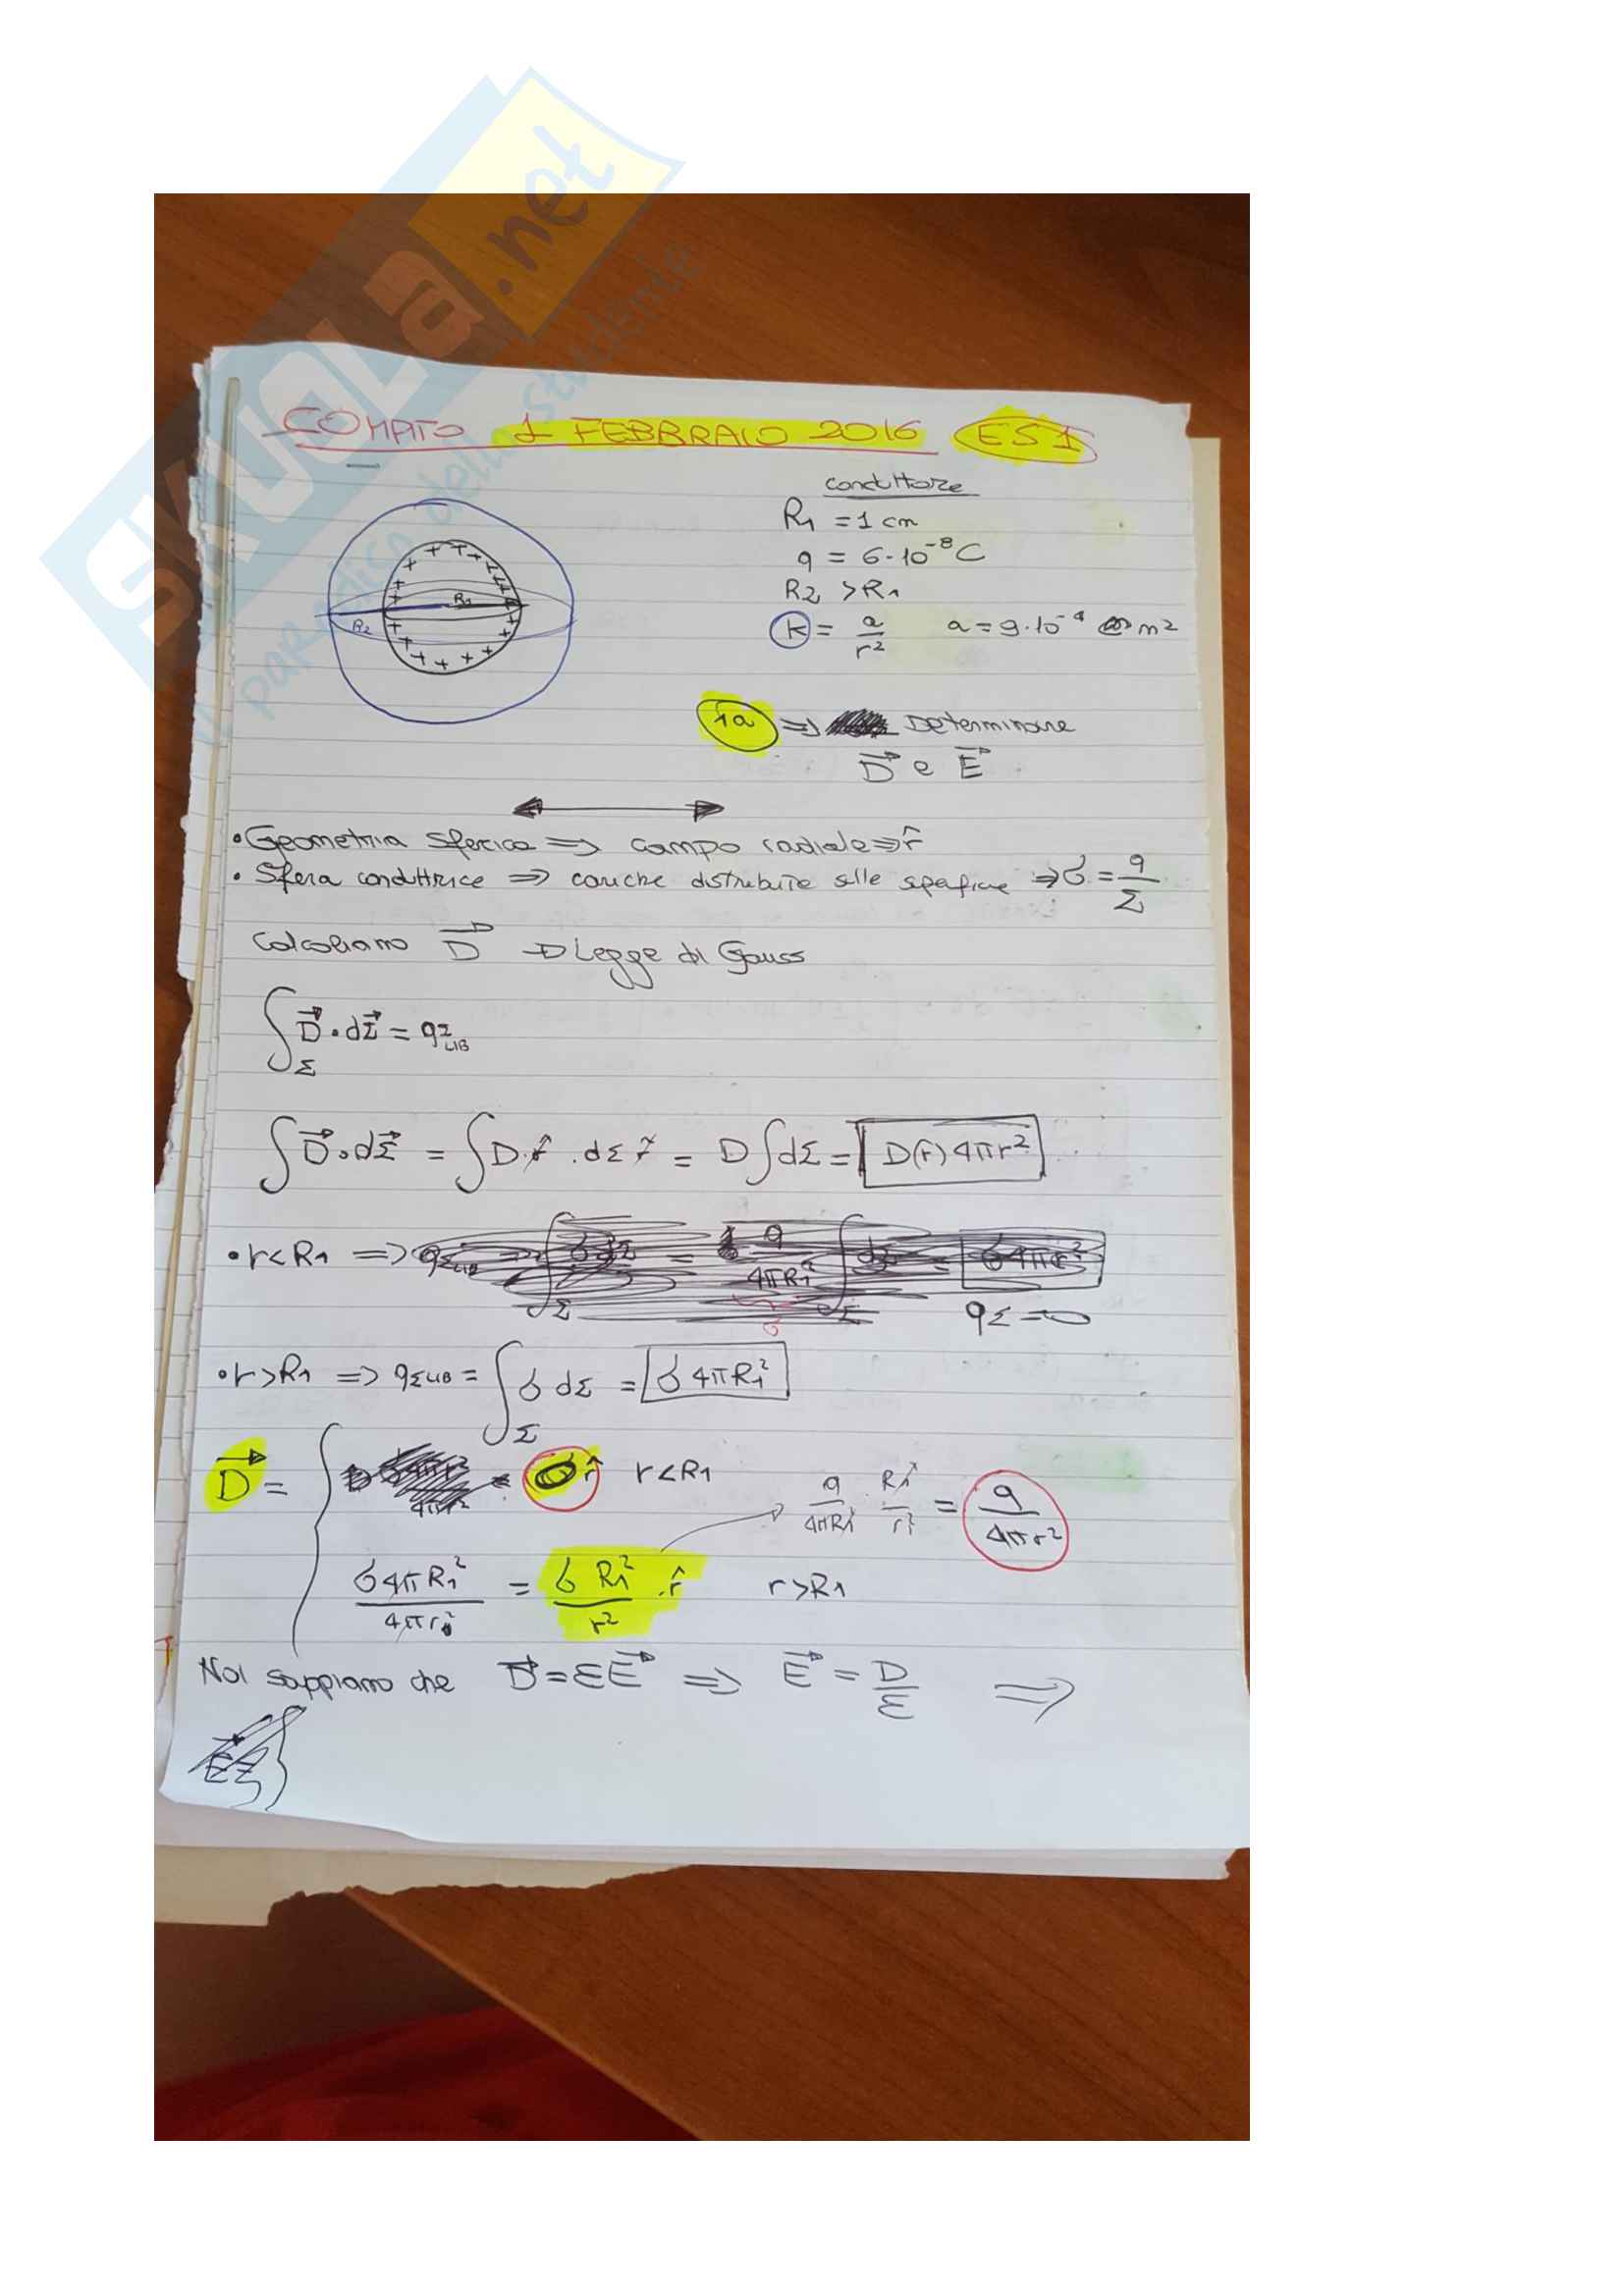 SKUOLA.net
paradiso dello studente
COMPITO 1 FEBBRAIO 2016 ES1
conduttore
R₁ = 1 cm
q = 6·10⁻⁸ C
R₂ > R₁
k = a/r² a = 9·10⁻⁴ m²
R₁
R₂
1a ⇒ Determinare
D⃗ e E⃗
• Geometria sferica ⇒ campo radiale ⇒ r̂
• Sfera conduttrice ⇒ cariche distribuite sulle superficie ⇒ σ = q/Σ
Calcoliamo D⃗ → Legge di Gauss
∫_Σ D⃗ · dΣ⃗ = qΣ LIB
∫ D⃗ · dΣ⃗ = ∫ D · r̂ · dΣ r̂ = D ∫ dΣ = D(r) 4πr²
• r < R₁ ⇒ qΣ = 0
• r > R₁ ⇒ qΣ LIB = ∫_Σ σ dΣ = σ 4πR₁²
D⃗ = { 0 r̂ r < R₁
q/4πR₁² R₁²/r² = q/4πr²
σ4πR₁²/4πr² = σ R₁²/r² · r̂ r > R₁
Noi sappiamo che D⃗ = εE⃗ ⇒ E⃗ = D/ε ⇒